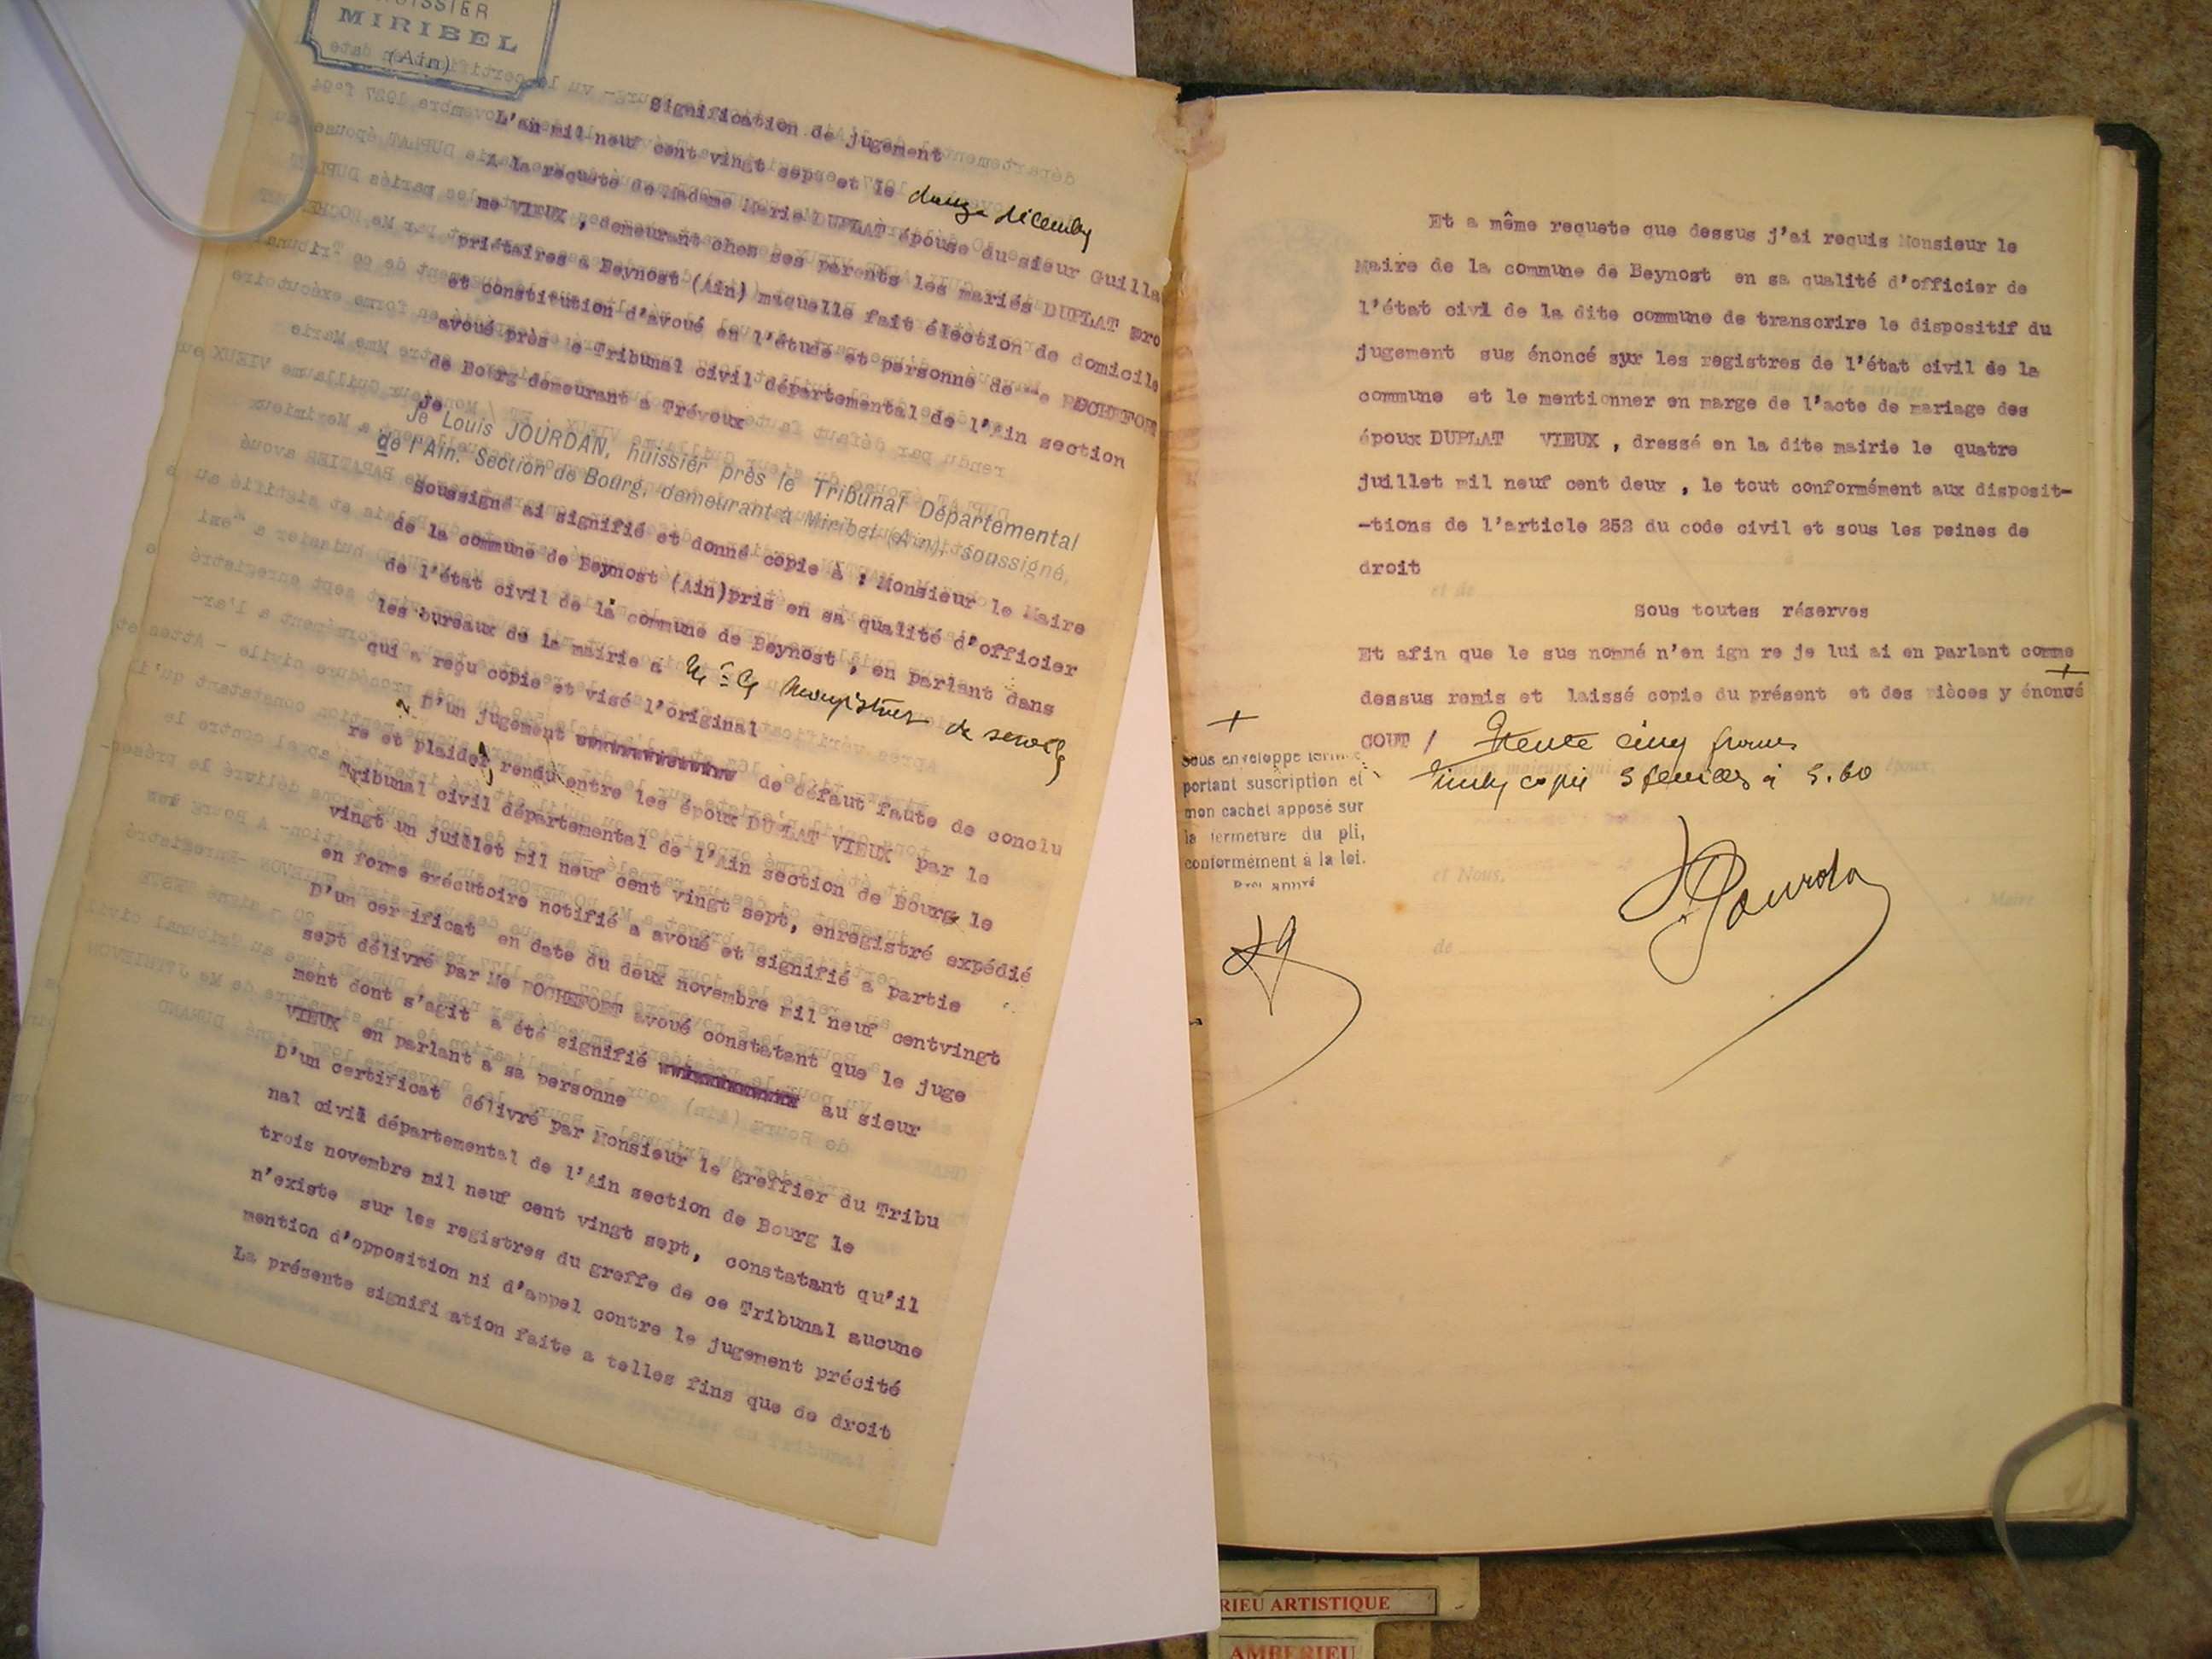 HUISSIER
MIRIBEL
(Ain)
Signification de jugement
L'an mil neuf cent vingt sept et le douze décembre
A la requête de Madame Marie DUPLAT épouse du sieur Guilla
me VIEUX , demeurant chez ses parents les mariés DUPLAT pro
priétaires a Beynost (Ain) maquelle fait élection de domicile
et constitution d'avoué en l'étude et personne de Me ROCHEFORT
avoué près le Tribunal civil départemental de l'Ain section
de Bourg demeurant a Trévoux
je
Je Louis JOURDAN, huissier près le Tribunal Départemental
de l'Ain. Section de Bourg, demeurant à Miribel (Ain), soussigné,
Soussigné ai signifié et donné copie à : Monsieur le Maire
de la commune de Beynost (Ain)pris en sa qualité d'officier
de l'état civil de la commune de Beynost , en parlant dans
les bureaux de la mairie a
qui a reçu copie et visé l'original
D'un jugement de défaut faute de conclu
re et plaider rendu entre les époux DUPLAT VIEUX par le
Tribunal civil départemental de l'Ain section de Bourg le
vingt un juillet mil neuf cent vingt sept, enregistré expédié
en forme exécutoire notifié a avoué et signifié a partie
D'un cer ificat en date du deux novembre mil neuf centvingt
sept délivré par Me ROCHEFORT avoué constatant que le juge
ment dont s'agit a été signifié au sieur
VIEUX en parlant a sa personne
D'un certificat délivré par Monsieur le greffier du Tribu
nal civil départemental de l'Ain section de Bourg le
trois novembre mil neuf cent vingt sept, constatant qu'il
n'existe sur les registres du greffe de ce Tribunal aucune
mention d'opposition ni d'appel contre le jugement précité
La présente signifi ation faite a telles fins que de droit
Et a même requete que dessus j'ai requis Monsieur le
Maire de la commune de Beynost en sa qualité d'officier de
l'état civil de la dite commune de transcrire le dispositif du
jugement sus énoncé syr les registres de l'état civil de la
commune et le mentionner en marge de l'acte de mariage des
époux DUPLAT VIEUX , dressé en la dite mairie le quatre
juillet mil neuf cent deux , le tout conformément aux disposit-
-tions de l'article 252 du code civil et sous les peines de
droit
Sous toutes réserves
Et afin que le sus nommé n'en ign re je lui ai en parlant comme
dessus remis et laissé copie du présent et des pièces y énoncé
COUT / Trente cinq francs
copie 3 feuilles à 5.60
Sous enveloppe fermée
portant suscription et
mon cachet apposé sur
la fermeture du pli,
conformément à la loi.
Jourda
RIEU ARTISTIQUE
AMBERIEU